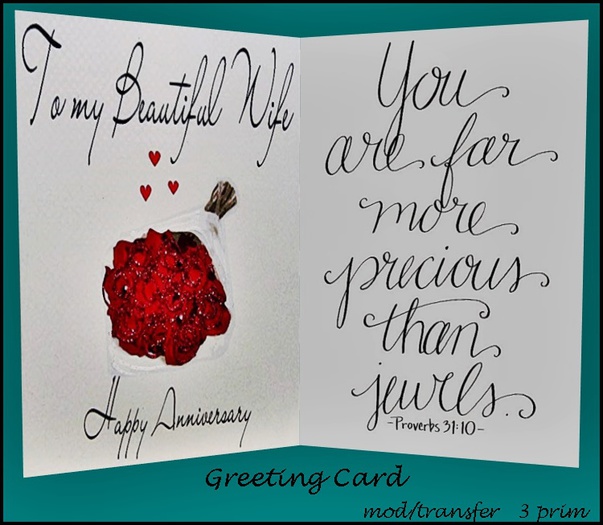 To my Beautiful Wife
Happy Anniversary
You
are far
more
precious
than
jewels.
-Proverbs 31:10-
Greeting Card
mod/transfer 3 prim